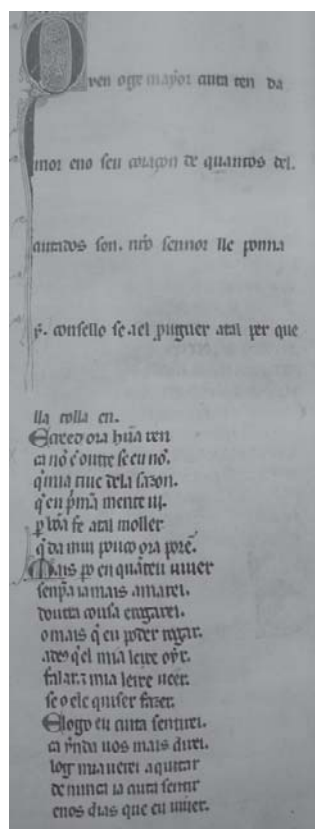 Quen oge mayor cuita ten da
mor eno seu coraçon de quantos del.
cuitados son. nr̃o sennor lle ponna
ỹ. consello se a el prouguer atal per que
lla tolla en.
E creed ora hũa ren
ca nõ é outre se eu nõ.
q̃ mia tiue dela sazon.
q̃ en p̃ma mente ui.
p̱ bõa fe atal moller
q̃ da mui pouco ora porẽ.
Mais p̱o en quãt eu uiuer
senp̃a ia mais amarei.
doutra cousa e rogarei.
o mais q̃ eu poder rogar.
a de9 q̃ el mia leixe oyr.
falar. ⁊ mia leixe ueer.
se o ele quiser fazer.
E logo eu cuita sentirei.
ca ỹnda uos mais direi.
log mi auerei a quitar
de nunca ia cuita sentir
enos dias que eu uiuer.